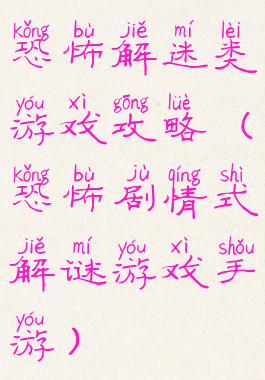 kǒng bù jiě mí lèi
恐怖解迷类
yóu xì gōng lüè
游戏攻略（
kǒng bù jù qíng shì
恐怖剧情式
jiě mí yóu xì shǒu
解谜游戏手
yóu
游）